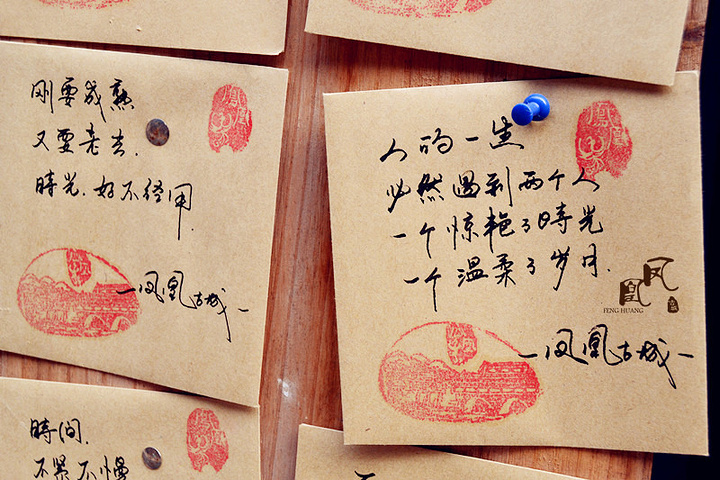 刚要成熟
又要老去.
時光.好不经用.
—凤凰古城—
人的一生
必然遇到两个人
一个惊艳了時光
一个温柔了岁月.
凤凰
FENG HUANG
—凤凰古城—
時间.
不紧不慢